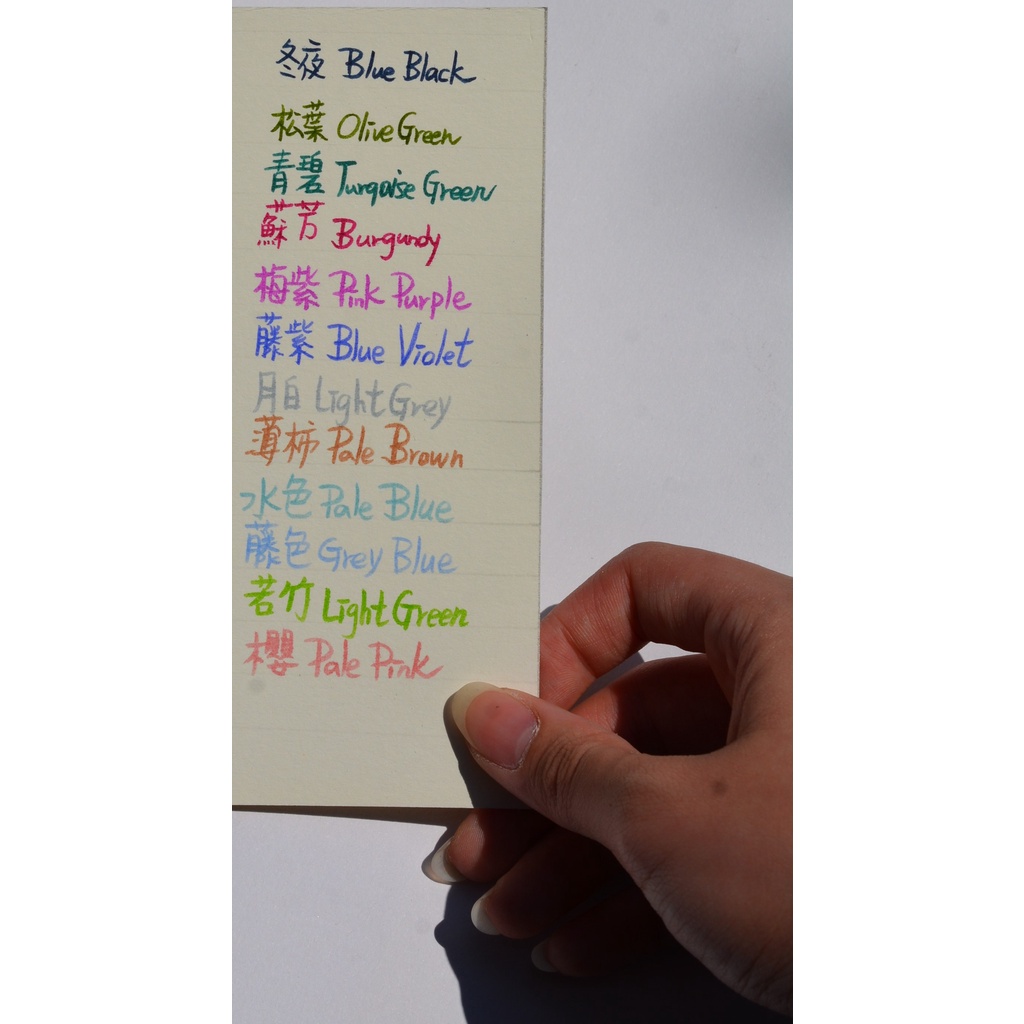 冬夜 Blue Black
松葉 Olive Green
青碧 Turqoise Green
蘇芳 Burgundy
梅紫 Pink Purple
藤紫 Blue Violet
月白 Light Grey
薄柿 Pale Brown
水色 Pale Blue
藤色 Grey Blue
若竹 Light Green
櫻 Pale Pink